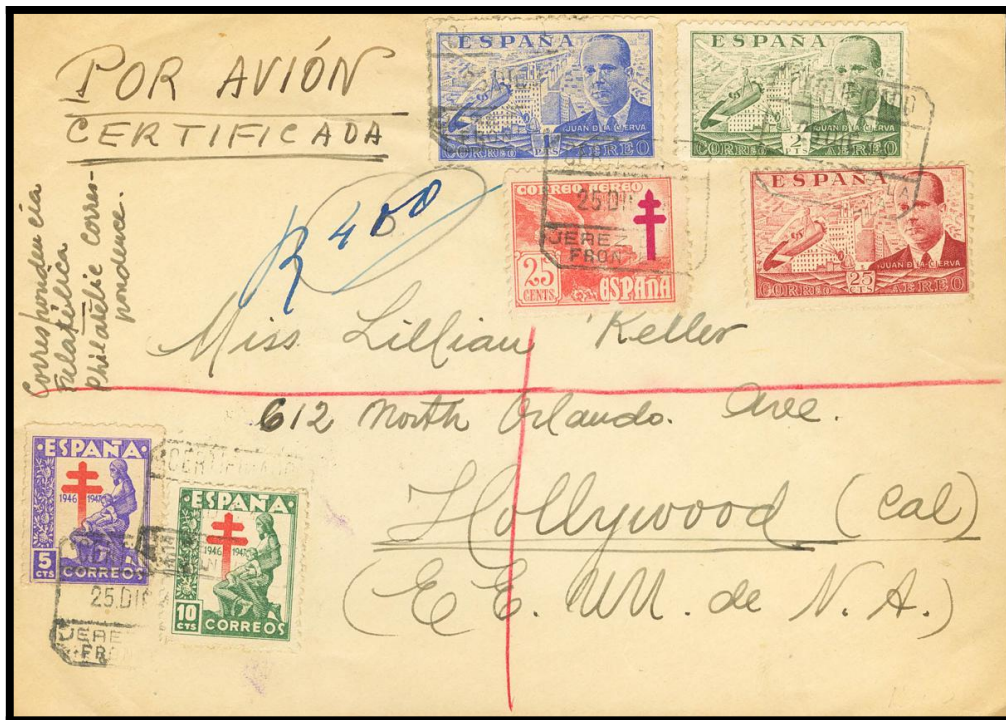 POR AVIÓN
CERTIFICADA
Correspondencia
Filatélica
Philatelic Corres-
pondence.
R 400
ESPAÑA
JUAN DE LA CIERVA
CORREO 1 PTS AEREO
ESPAÑA
JUAN DE LA CIERVA
CORREO 2 PTS AEREO
CORREO AEREO
25
CENTS
ESPAÑA
25 DIC
JEREZ
FRON
ESPAÑA
JUAN DE LA CIERVA
CORREO 25 CTS AEREO
Miss Lillian Keller
612 North Orlando. Ave.
Hollywood (Cal)
(E E. UU. de N. A.)
·ESPAÑA·
1946 1947
5
CTS CORREOS
CERTIFICADO
·ESPAÑA·
1946 1947
10
CTS CORREOS
25.DIC
JERE
FRON